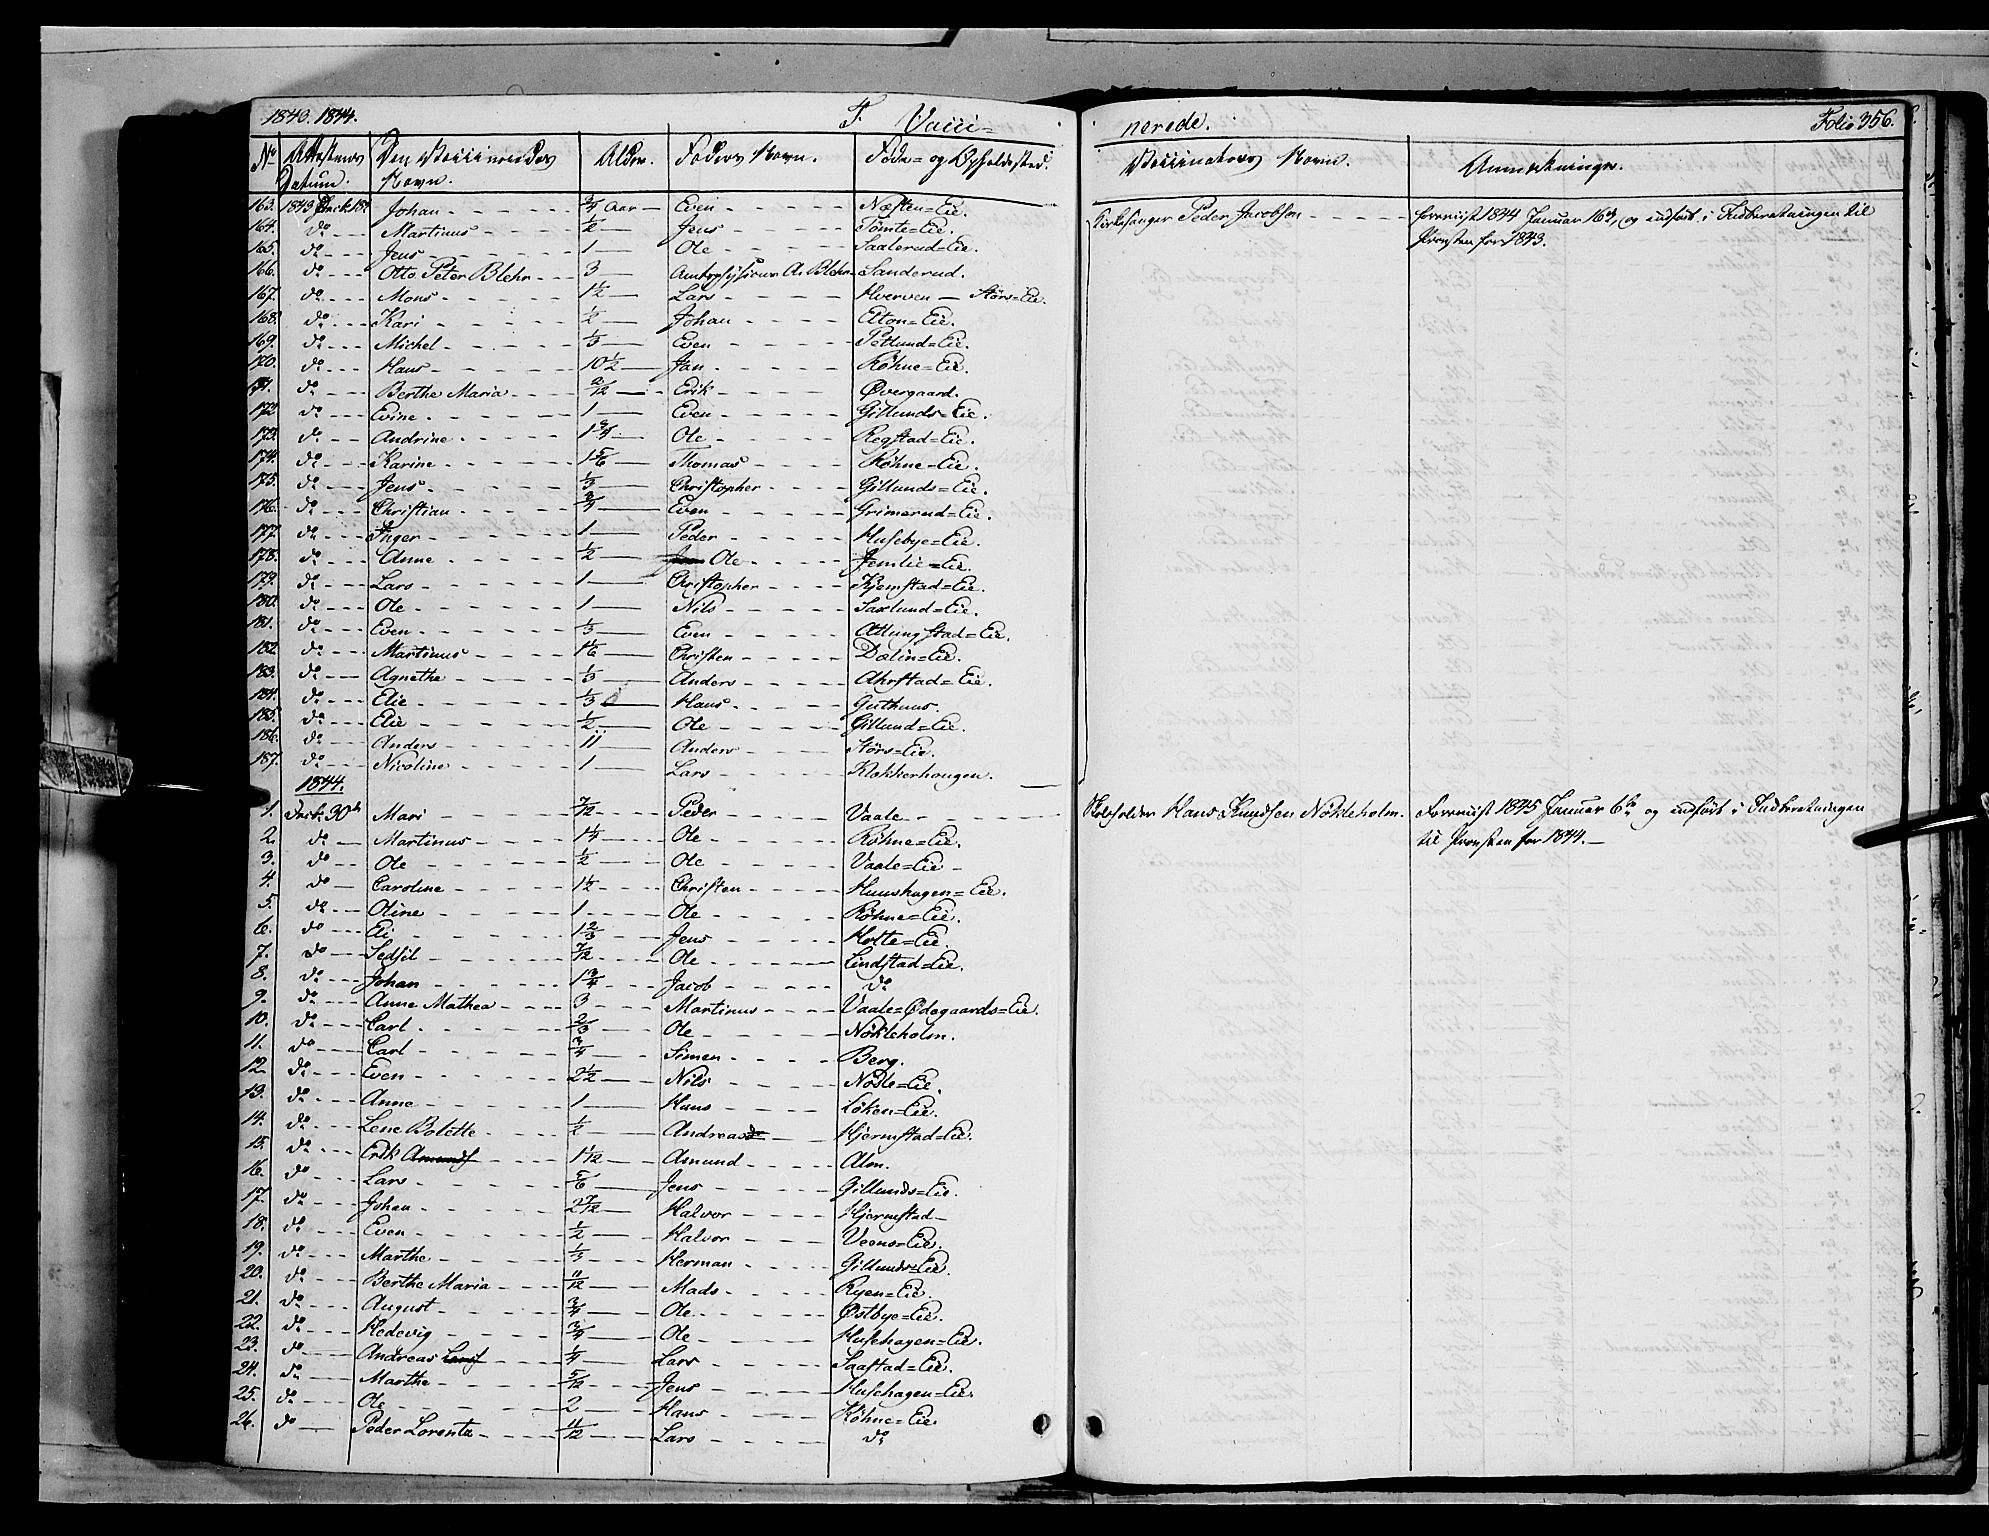 1843. 1844. F. Vacci=
nerede. Folio 356.
No Attestens Datum. Den Vaccineredes Navn. Alder. Faders Navn. Føde= og Opholdssted. Vaccinateurs Navn. Anmærkninger.
163. 1843 18de Johan 3/4 Aar Even Næsten=Eie. Kirkesanger Peder Jacobsen foreviist 1844 Januar 16de, og indført i Indberetningen til
164. do Martinus 1/2 Jens Tomte=Eie. Provsten for 1843.
165. do Jens 1 Ole Saalerud=Eie.
166. do Otto Peter Blehr 3 A. Blehr Sanderud.
167. do Mons 1 1/2 Lars Hverven Størs=Eie.
168. do Kari 1/2 Johan Elton=Eie.
169. do Michel 1/3 Even Potlund=Eie.
170. do Hans 10 1/2 Jan Røhne=Eie.
171. do Berthe Maria 2/12 Erik Øvergaard.
172. do Evine 1 Even Gillunds=Eie.
173. do Andrine 1 3/4 Ole Regstad=Eie.
174. do Karine 1 5/6 Thomas Røhne=Eie.
175. do Jens 1/3 Christopher Gillunds=Eie.
176. do Christian 3/4 Even Grimerud=Eie.
177. do Inger 1 Peder Husebye=Eie.
178. do Anne 1/2 Ole Jemlie=Eie.
179. do Lars 1 Christopher Kjemstad=Eie.
180. do Ole 1 Nils Saxlund=Eie.
181. do Even 1/3 Even Attungstad=Eie.
182. do Martinus 1 1/6 Christen Dælin=Eie.
183. do Agnethe 1/3 Anders Ahrstad=Eie.
184. do Elie 1/3 Hans Guthuus.
185. do Elie 1/2 Ole Gillund=Eie.
186. do Anders 11 Anders Størs=Eie.
187. do Nicoline 1 Lars Klokkerhougen.
1844.
1. 30te Mari 7/12 Peder Vaale Skoleholder Hans Knudsen Nökleholm. Foreviist 1845 Januar 6te og indført i Indberetningen
2. do Martinus 1 1/4 Ole Røhne=Eie. til Provsten for 1844.
3. do Ole 1/2 Ole Vaale=Eie
4. do Caroline 1 1/2 Christen Huushagen=Eie.
5. do Oline 1 Ole Røhne=Eie.
6. do Eli 1 2/3 Jens Holte=Eie.
7. do Sedsil 7/12 Ole Lindstad=Eie.
8. do Johan 1 3/4 Jacob do
9. do Anne Mathea 3 Martinus Vaale=Ødegaards=Eie.
10. do Carl 2/3 Ole Nökleholm.
11. do Carl 3/4 Simen Berg.
12. do Even 2 1/2 Nils Nøkle=Eie.
13. do Anne 1 Hans Løken=Eie.
14. do Lene Bolette 1/2 Andreas Hjermstad=Eie.
15. do Erik Amunds 1 1/12 Asmund Alm.
16. do Lars 5/6 Jens Gillunds=Eie.
17. do Johan 2 7/12 Halvor Hjermstad
18. do Even 1/2 Halvor Veens=Eie.
19. do Marthe 1/3 Herman Gillunds=Eie.
20. do Berthe Maria 11/12 Mads Ryen=Eie.
21. do August 3/4 Ole Østbye=Eie.
22. do Hedevig 3/4 Ole Husehagen=Eie.
23. do Andreas Lars 1/4 Lars Saastad=Eie.
24. do Marthe 5/12 Jens Husehagen=Eie.
25. do Ole 2 Hans Røhne=Eie.
26. do Peder Lorents 11/12 Lars do